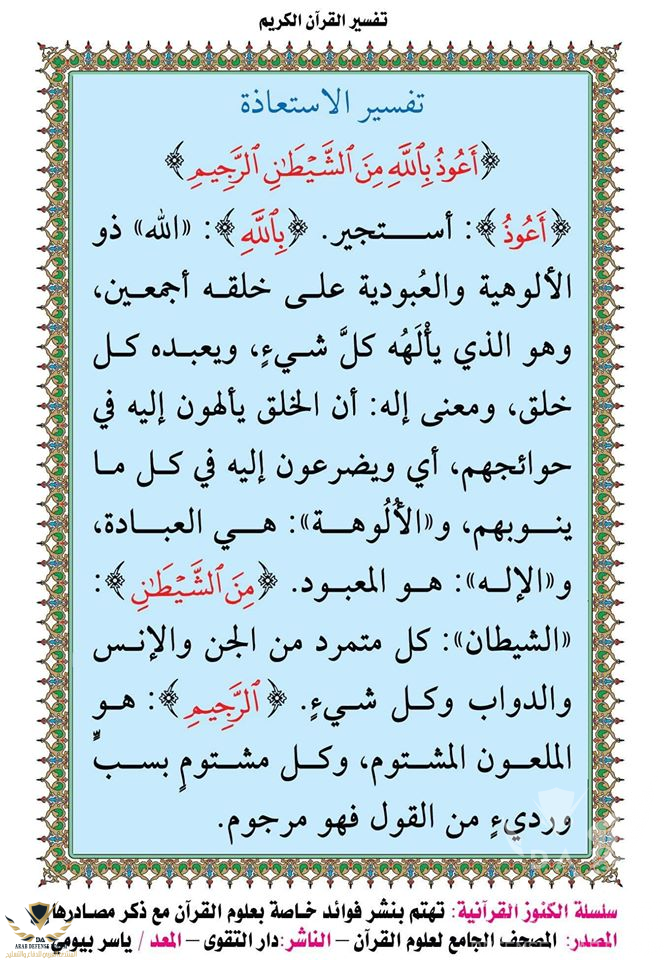 تفسير القرآن الكريم
تفسير الاستعاذة
﴿أَعُوذُ بِٱللَّهِ مِنَ ٱلشَّيْطَٰنِ ٱلرَّجِيمِ﴾
﴿أَعُوذُ﴾: أستجير. ﴿بِٱللَّهِ﴾: «الله» ذو
الألوهية والعُبودية على خلقه أجمعين،
وهو الذي يأْلَهُه كلَّ شيءٍ، ويعبده كل
خلق، ومعنى إله: أن الخلق يألهون إليه في
حوائجهم، أي ويضرعون إليه في كل ما
ينوبهم، و«الأُلُوهة»: هي العبادة،
و«الإله»: هو المعبود. ﴿مِنَ ٱلشَّيْطَٰنِ﴾:
«الشيطان»: كل متمرد من الجن والإنس
والدواب وكل شيءٍ. ﴿ٱلرَّجِيمِ﴾: هو
الملعون المشتوم، وكل مشتومٍ بسبٍّ
ورديءٍ من القول فهو مرجوم.
سلسلة الكنوز القرآنية: تهتم بنشر فوائد خاصة بعلوم القرآن مع ذكر مصادرها
المصدر: المصحف الجامع لعلوم القرآن – الناشر: دار التقوى – المعد / ياسر بيومي
DA
ARAB DEFENSE